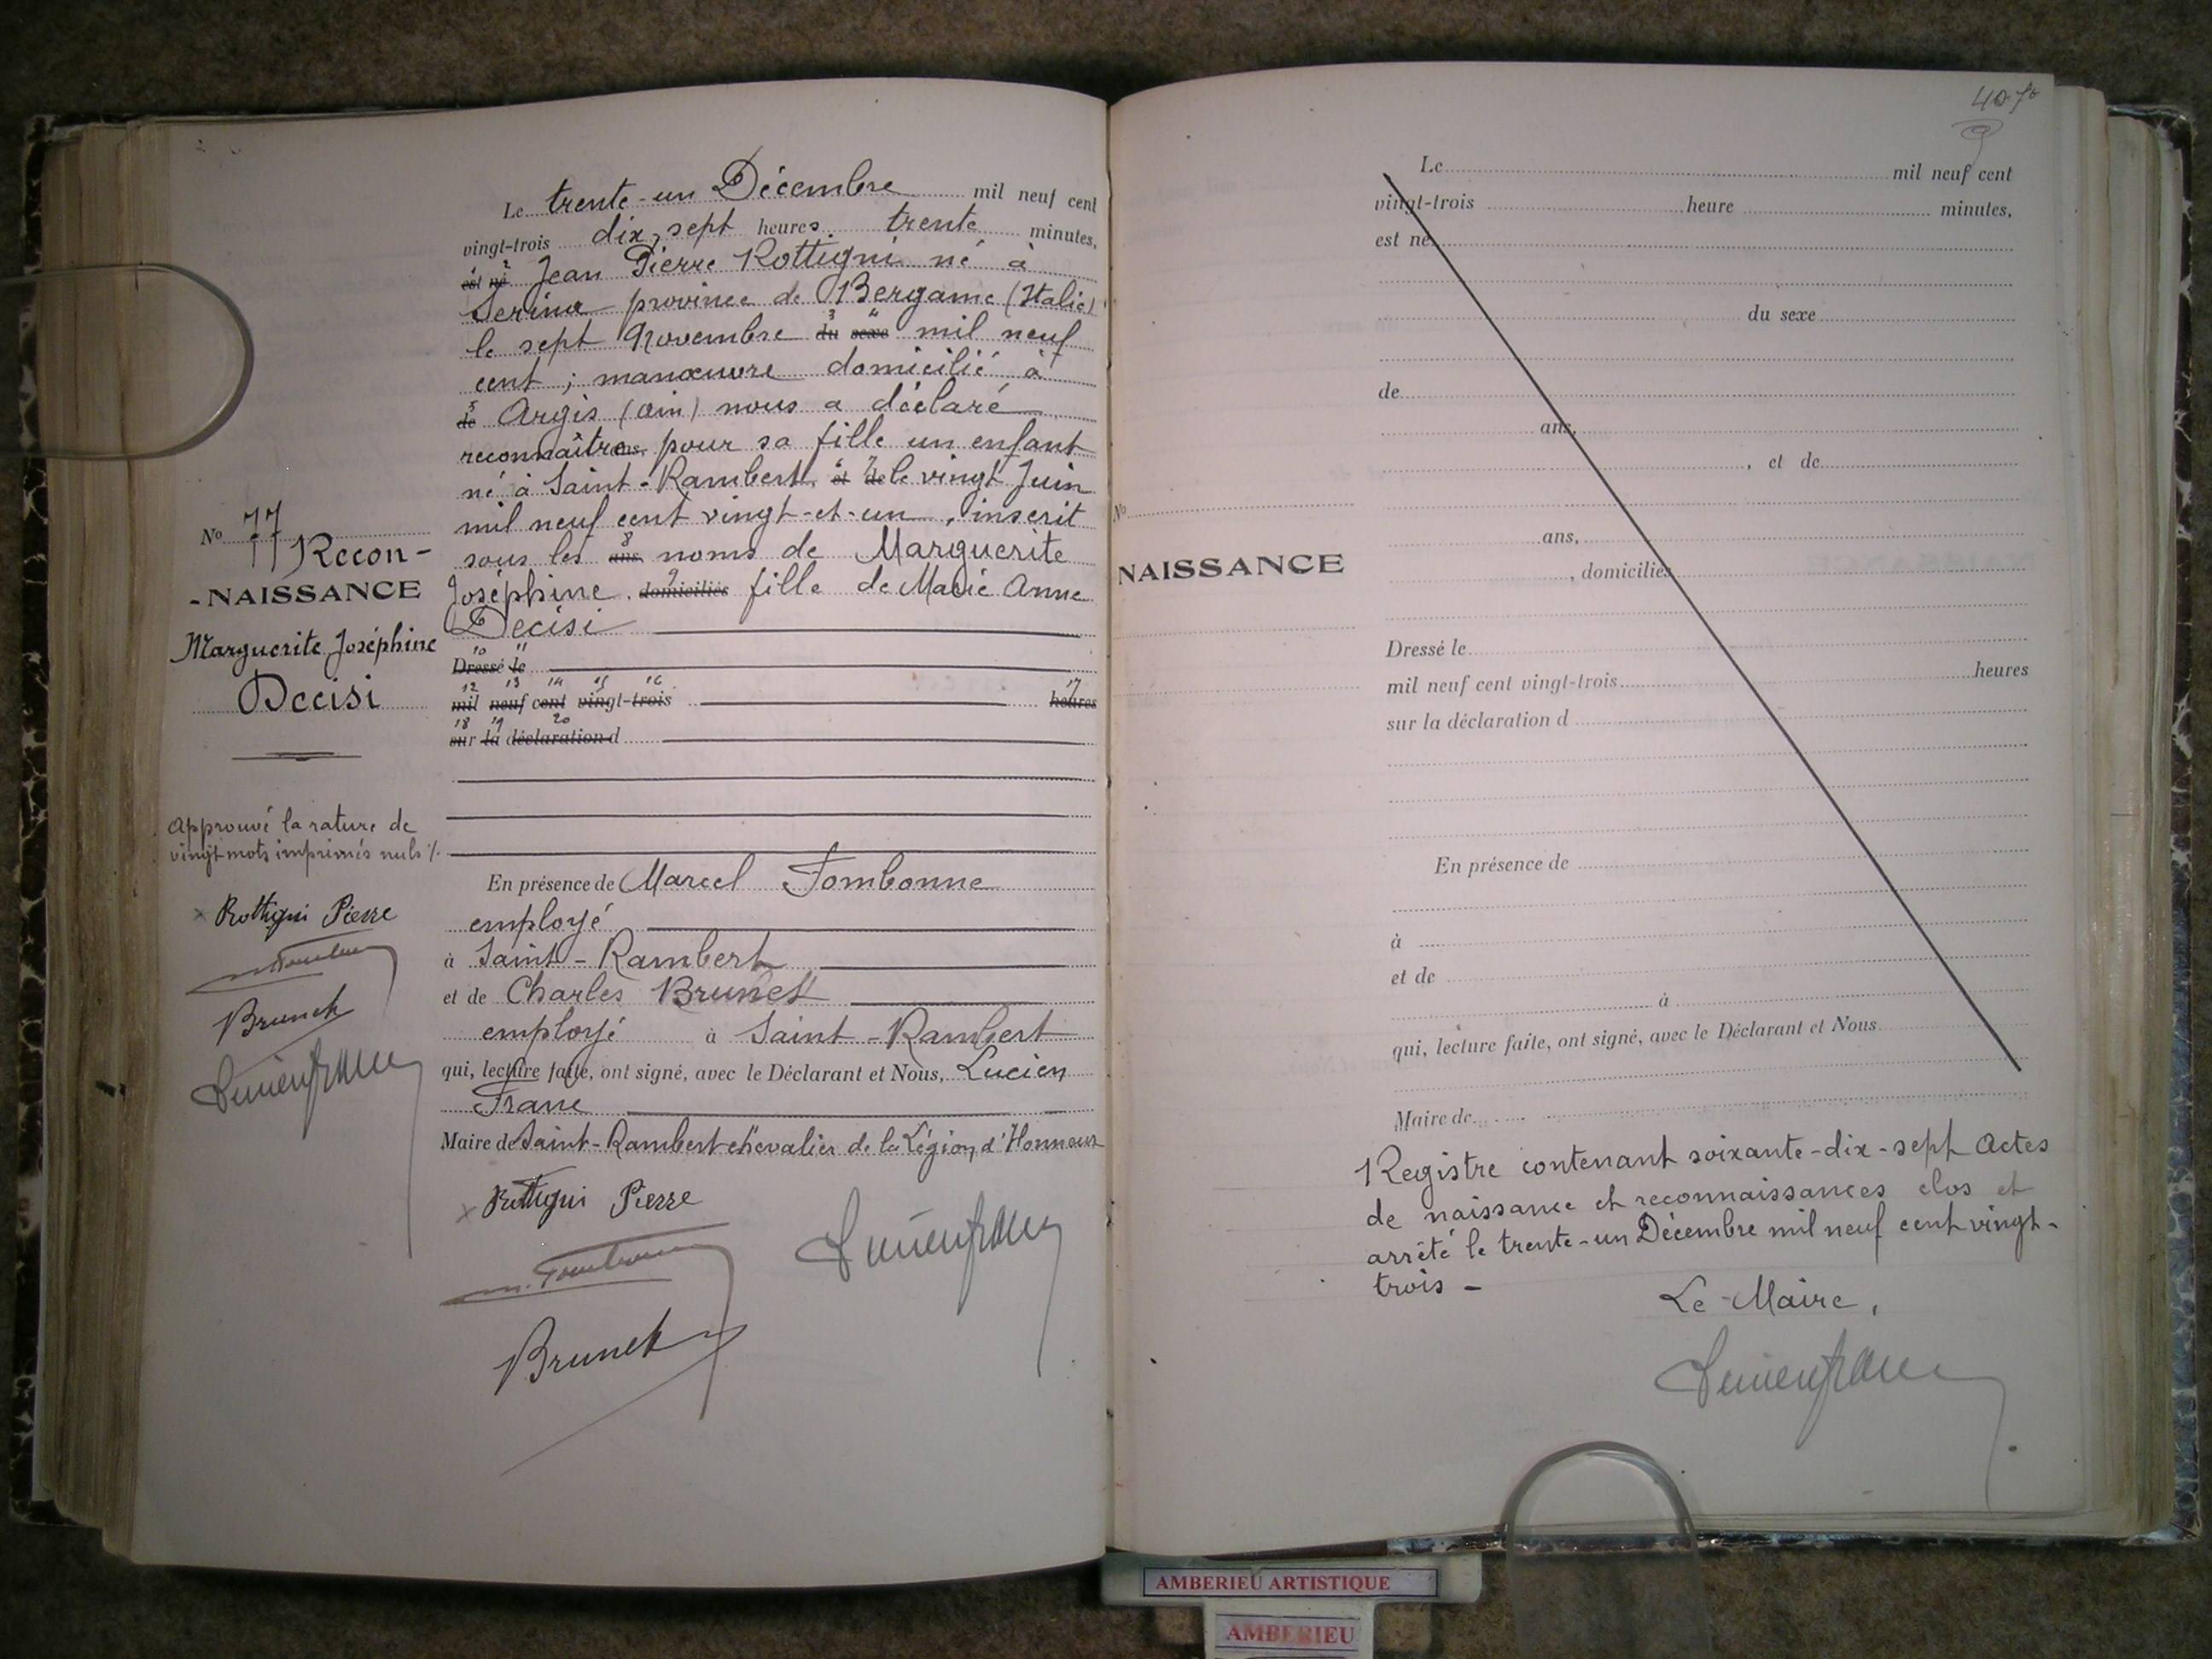 Le trente-un Décembre mil neuf cent
vingt-trois dix-sept heures trente minutes,
est né Jean Pierre Rottigni né à
Serina province de Bergame (Italie)
le sept Novembre du sexe mil neuf
cent ; manœuvre domicilié à
de Argis (Ain) nous a déclaré
reconnaître ans, pour sa fille un enfant
né à Saint-Rambert, et de le vingt Juin
mil neuf cent vingt-et-un, inscrit
sous les ans, noms de Marguerite
Joséphine, domiciliés fille de Marie Anne
Decisi
Dressé le
mil neuf cent vingt-trois heures
sur la déclaration d
En présence de Marcel Tombonne
employé
à Saint-Rambert
et de Charles Brunet
employé à Saint-Rambert
qui, lecture faite, ont signé, avec le Déclarant et Nous, Lucien
Franc
Maire de Saint-Rambert chevalier de la Légion d'Honneur
Rottigni Pierre
Brunet
Lucien Franc
No 77
Recon-
-NAISSANCE
Marguerite Joséphine
Decisi
Approuvé la rature de
vingt mots imprimés nuls
Rottigni Pierre
Brunet
Lucien Franc
Le mil neuf cent
vingt-trois heure minutes,
est né
du sexe
de
ans,
, et de
ans,
, domiciliés
Dressé le
mil neuf cent vingt-trois heures
sur la déclaration d
En présence de
à
et de
à
qui, lecture faite, ont signé, avec le Déclarant et Nous
Maire de
No
NAISSANCE
Registre contenant soixante-dix-sept Actes
de naissance et reconnaissances clos et
arrêté le trente-un Décembre mil neuf cent vingt-
trois -
Le Maire,
Lucien Franc
AMBERIEU ARTISTIQUE
AMBERIEU